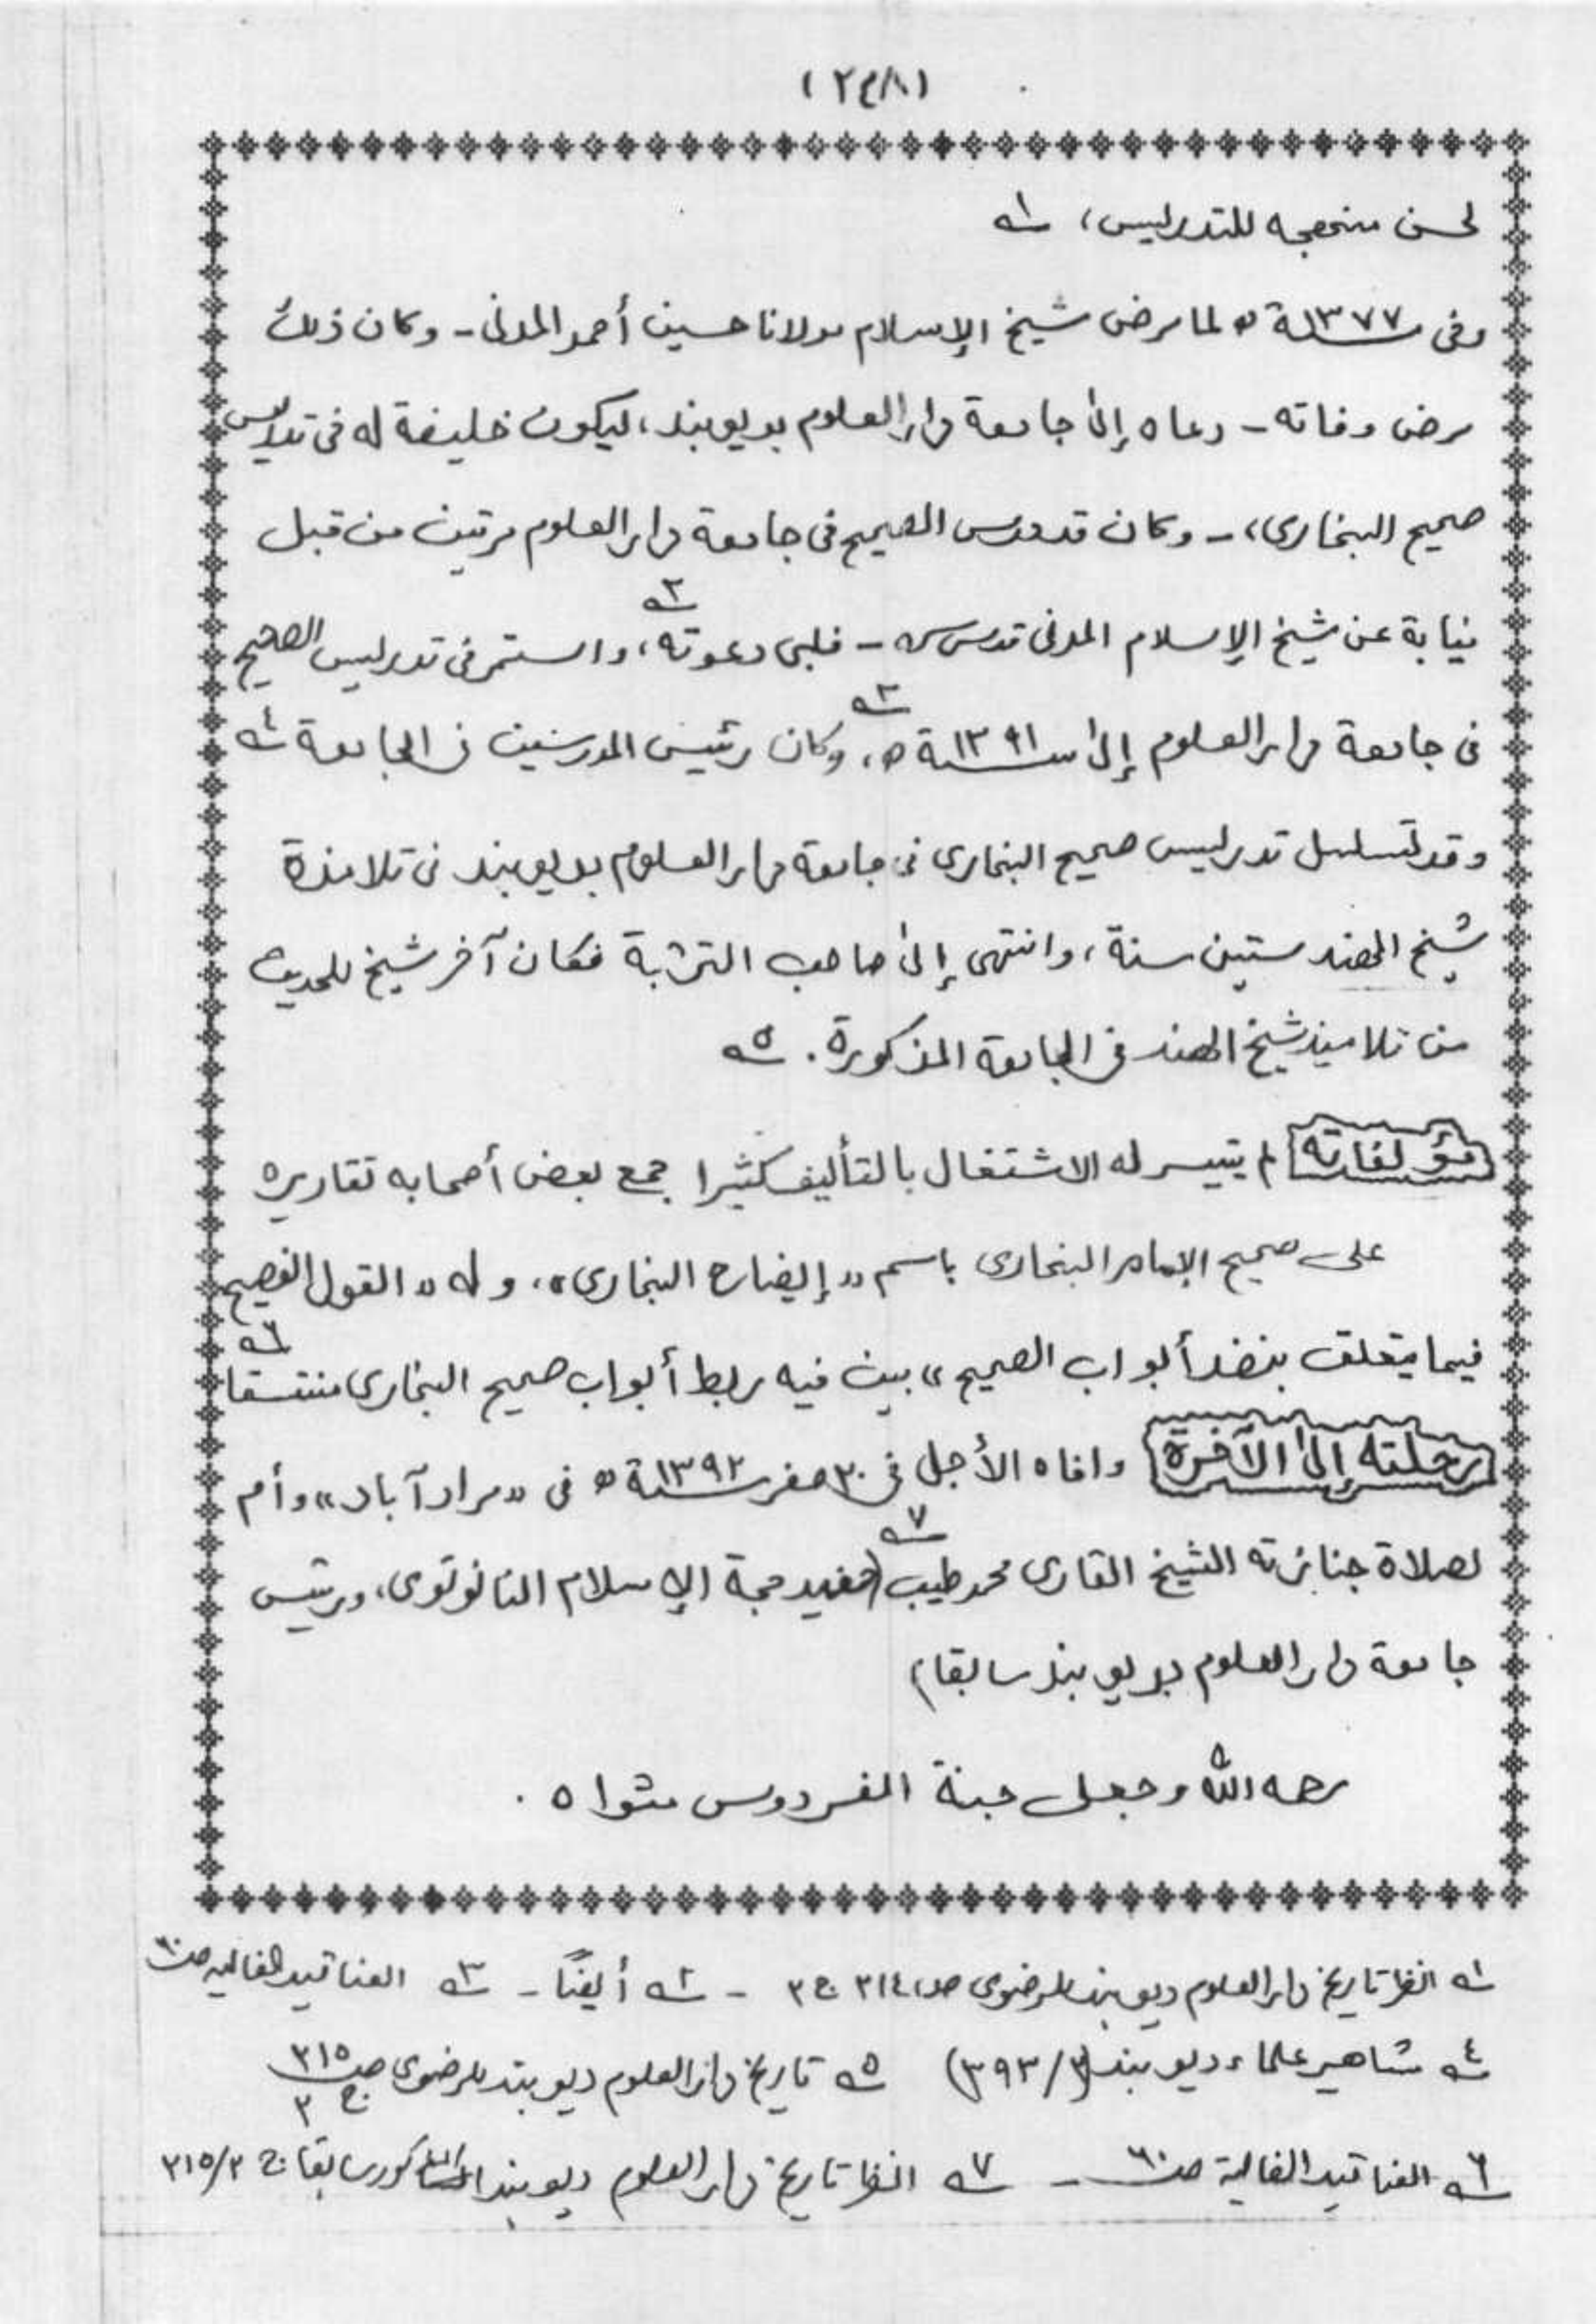 (٢٤٨)
لحسن منهجه للتدريس، ١ـه
وفى سنة ١٣٧٧ ه لما مرض شيخ الإسلام مولانا حسين أحمد المدنى - وكان ذلك
مرض وفاته - دعاه إلى جامعة دار العلوم بديوبند، ليكون خليفة له فى تدريس
صحيح البخارى، - وكان قد درس الصحيح فى جامعة دار العلوم مرتين من قبل
نيابة عن شيخ الإسلام المدنى قدس سره - فلبى دعوته، ٢ـه واستمر فى تدريس الصحيح
فى جامعة دار العلوم إلى سنة ١٣٩١ ه، ٣ـه وكان رئيس المدرسين فى الجامعة ٤ـه
وقد تسلسل تدريس صحيح البخارى فى جامعة دار العلوم بديوبند فى تلامذة
شيخ الهند ستين سنة، وانتهى إلى صاحب الترجمة فكان آخر شيخ للحديث
من تلاميذ شيخ الهند فى الجامعة المذكورة. ٥ـه
مؤلفاته لم يتيسر له الاشتغال بالتأليف كثيرا جمع بعض أصحابه تقاريره
على صحيح الإمام البخارى باسم «إيضاح البخارى»، وله «القول الفصيح
فيما يتعلق بنضد أبواب الصحيح» بين فيه ربط أبواب صحيح البخارى منتسقا ٦ـه
رحلته إلى الآخرة وافاه الأجل فى ٢٠ صفر سنة ١٣٩٢ ه فى «مرادآباد» وأم
لصلاة جنازته الشيخ القارى محمد طيب ٧ـه (حفيد حجة الإسلام النانوتوى، ورئيس
جامعة دار العلوم بديوبند سابقا)
رحمه الله وجعل جنة الفردوس مثواه.
١ـه انظر تاريخ دار العلوم ديوبند للرضوى صـ ٢١٤ ج ٢ - ٢ـه أيضًا - ٣ـه العناقيد الغالية صـ ٦٠
٤ـه مشاهير علماء ديوبند (٣٩٣/٣) ٥ـه تاريخ دار العلوم ديوبند للرضوى صـ ٢١٥ ج ٢
٦ـه العناقيد الغالية صـ ٦٠ - ٧ـه انظر تاريخ دار العلوم ديوبند المذكور سابقا ج ٢١٥/٢